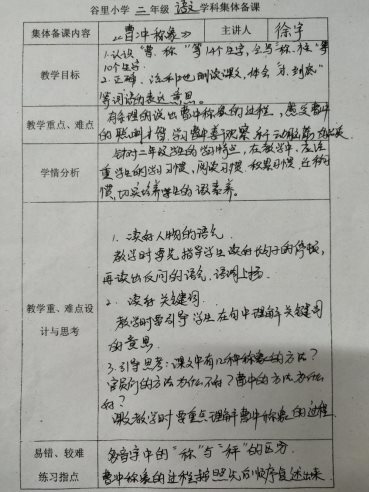 谷里小学 二 年级 语文 学科集体备课
集体备课内容 《曹冲称象》 主讲人 徐宇
教学目标
1.认识"曹、称"等14个生字,会写"称、柱"等
10个生字。
2.正确、流利地朗读课文,体会"到底"
等词语的表达意思。
教学重点、难点
有条理的说出曹冲称象的过程,感受曹冲
的聪明才智,学习曹冲善观察
学情分析
针对二年级学生的学习特点,在教学中,应注
重学生的学习习惯,阅读习惯、积累习惯
惯,切实培养学生的语文素养。
教学重、难点设
计与思考
1.读好人物的语气
教学时要先指导学生读好长句子的停顿,
再读出反问的语气,语调上扬。
2.读好关键词.
教学时要引导学生在句中理解关键词
的意思.
3.引导思考:课文中有几种称象的方法?
官员们的方法为什么不好?曹冲的方法为什么
好?
教学时要重点理解曹冲称象的过程.
易错、较难
练习指点
多音字中的"称"与"秤"的区分.
曹冲称象的过程按照先后顺序复述出来.